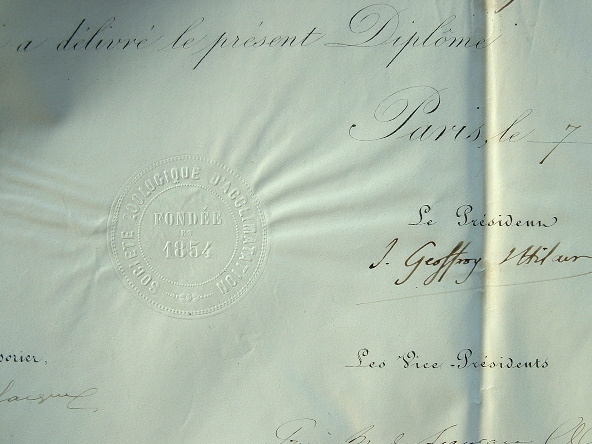 a délivré le présent Diplôme
Paris, le 7
SOCIÉTÉ ZOOLOGIQUE D'ACCLIMATATION
FONDÉE
EN
1854
Le Président
I. Geoffroy St Hilaire
sorier,
Les Vice-Présidents